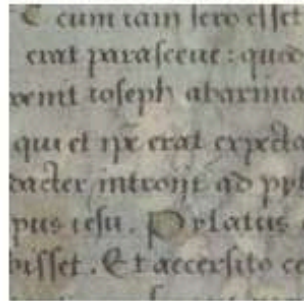 E cum iam sero esset
erat parasceue : quod
venit ioseph abarima
qui et ipẽ erat expecta
dacter introijt ad pyl
pus iesu . Pylatus
bisset . Et accersito ce